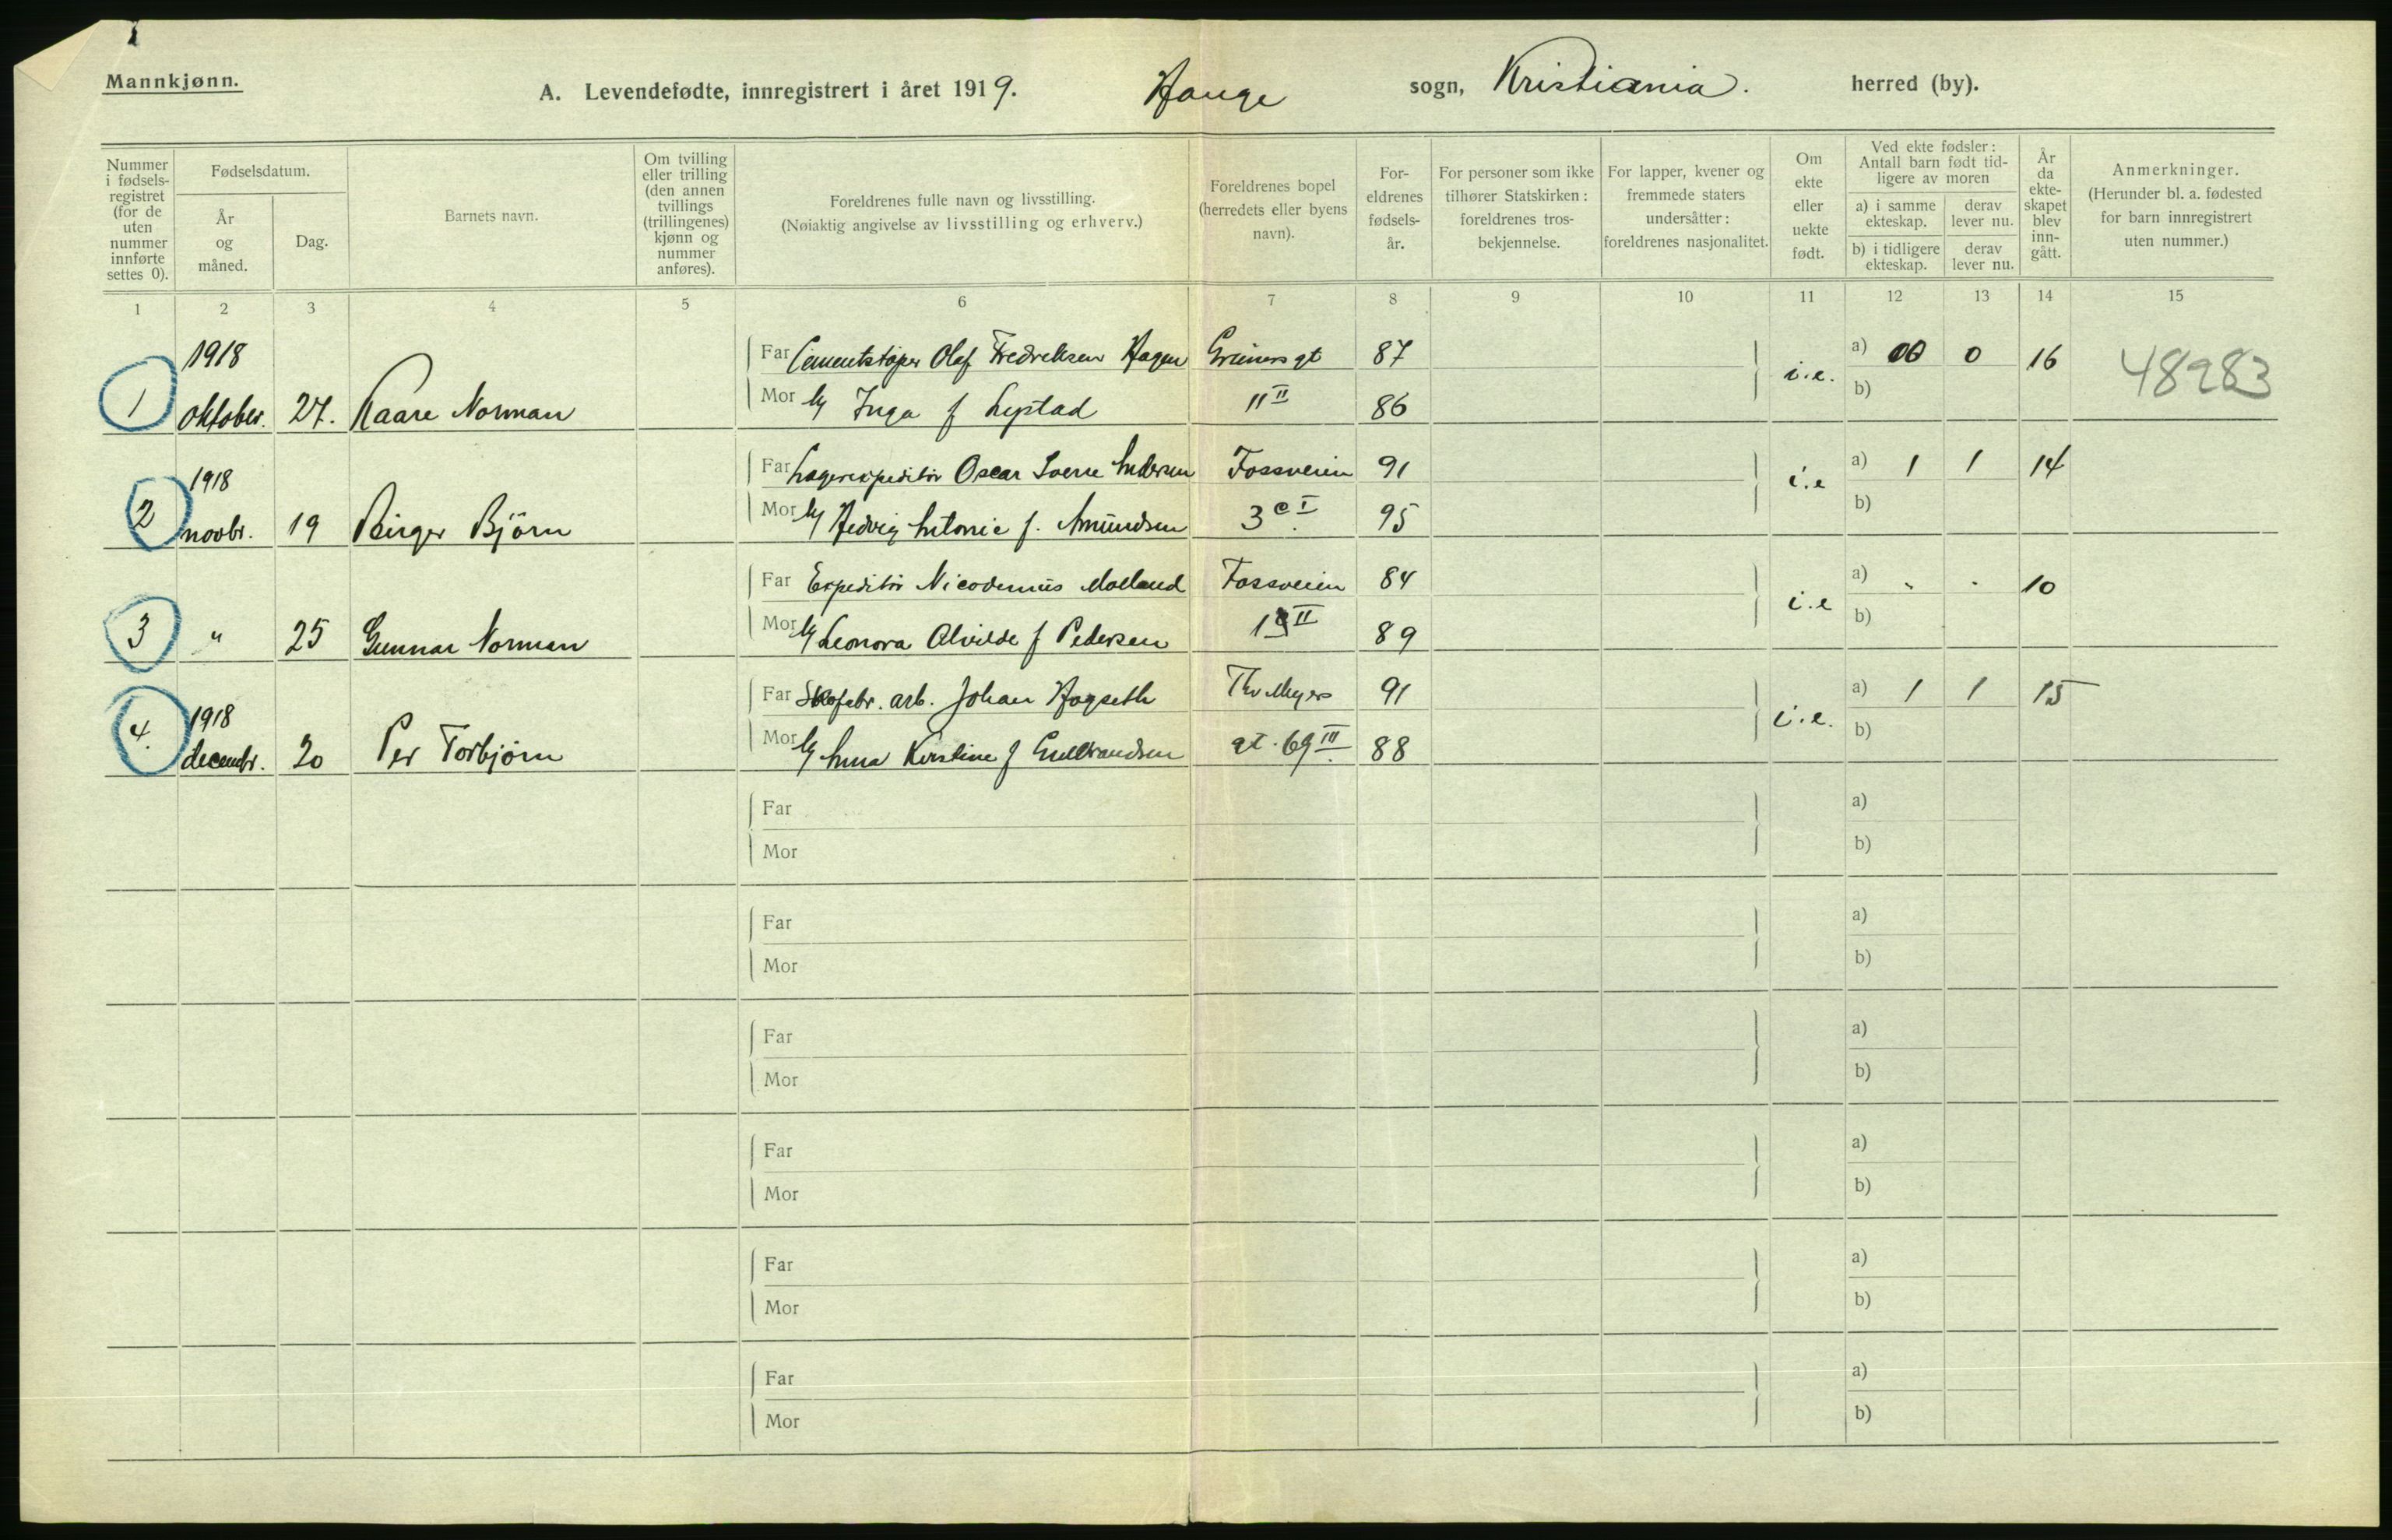 Mannkjønn.
A. Levendefødte, innregistrert i året 1919. Hauge sogn, Kristiania. herred (by).
Nummer i fødsels-registret (for de uten nummer innførte settes 0).
Fødselsdatum.
År og måned.
Dag.
Barnets navn.
Om tvilling eller trilling (den annen tvillings (trillingenes) kjønn og nummer anføres).
Foreldrenes fulle navn og livsstilling.
(Nøiaktig angivelse av livsstilling og erhverv.)
Foreldrenes bopel (herredets eller byens navn).
For-eldrenes fødsels-år.
For personer som ikke tilhører Statskirken: foreldrenes tros-bekjennelse.
For lapper, kvener og fremmede staters undersåtter: foreldrenes nasjonalitet.
Om ekte eller uekte født.
Ved ekte fødsler: Antall barn født tid-ligere av moren
a) i samme ekteskap.
derav lever nu.
b) i tidligere ekteskap.
derav lever nu.
År da ekte-skapet blev inn-gått.
Anmerkninger.
(Herunder bl. a. fødested for barn innregistrert uten nummer.)
1 2 3 4 5 6 7 8 9 10 11 12 13 14 15
1918 Far Cementstøper Olaf Fredriksen Hagen Grünersgt 87 i.e. a) 0 0 16 48283
1 oktober. 27. Kaare Norman Mor Inga f 11 II 86 b)
1918 Far Lagerexpeditør Oscar Sverre Andersen Fossveien 91 i.e a) 1 1 14
2 novbr. 19 Birger Bjørn Mor Hedvig Antonie f. Amundsen 3 c I 95 b)
Far Expeditør Nicodemus Molland Fossveien 84 i.e a) " " 10
3 " 25 Gunnar Norman Mor Leonora Alvilde f Pedersen II 89 b)
1918 Far Skofabr. arb. Johan Hagseth Thv Meyers 91 i.e. a) 1 1 15
4. decembr. 20 Per Torbjørn Mor Anna Kirstine f Gulbrandsen gt. 69 III 88 b)
Far a)
Mor b)
Far a)
Mor b)
Far a)
Mor b)
Far a)
Mor b)
Far a)
Mor b)
Far a)
Mor b)